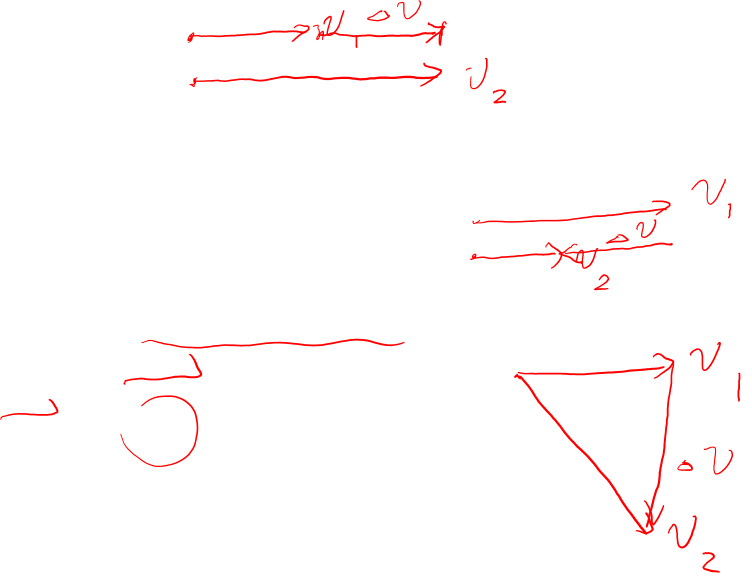 v Δv
v₂
v₁
Δv
v₂
v₁
Δv
v₂